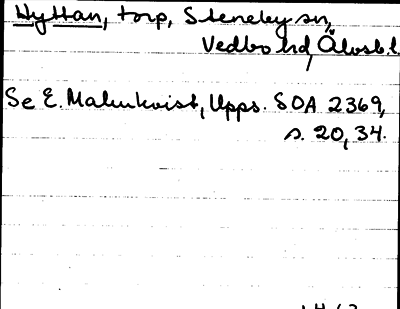 Hyttan, torp, Steneby sn,
Vedbo hd, Älvsb. l.
Se E. Malmkvist, Upps. SOA 2369,
s. 20, 34.